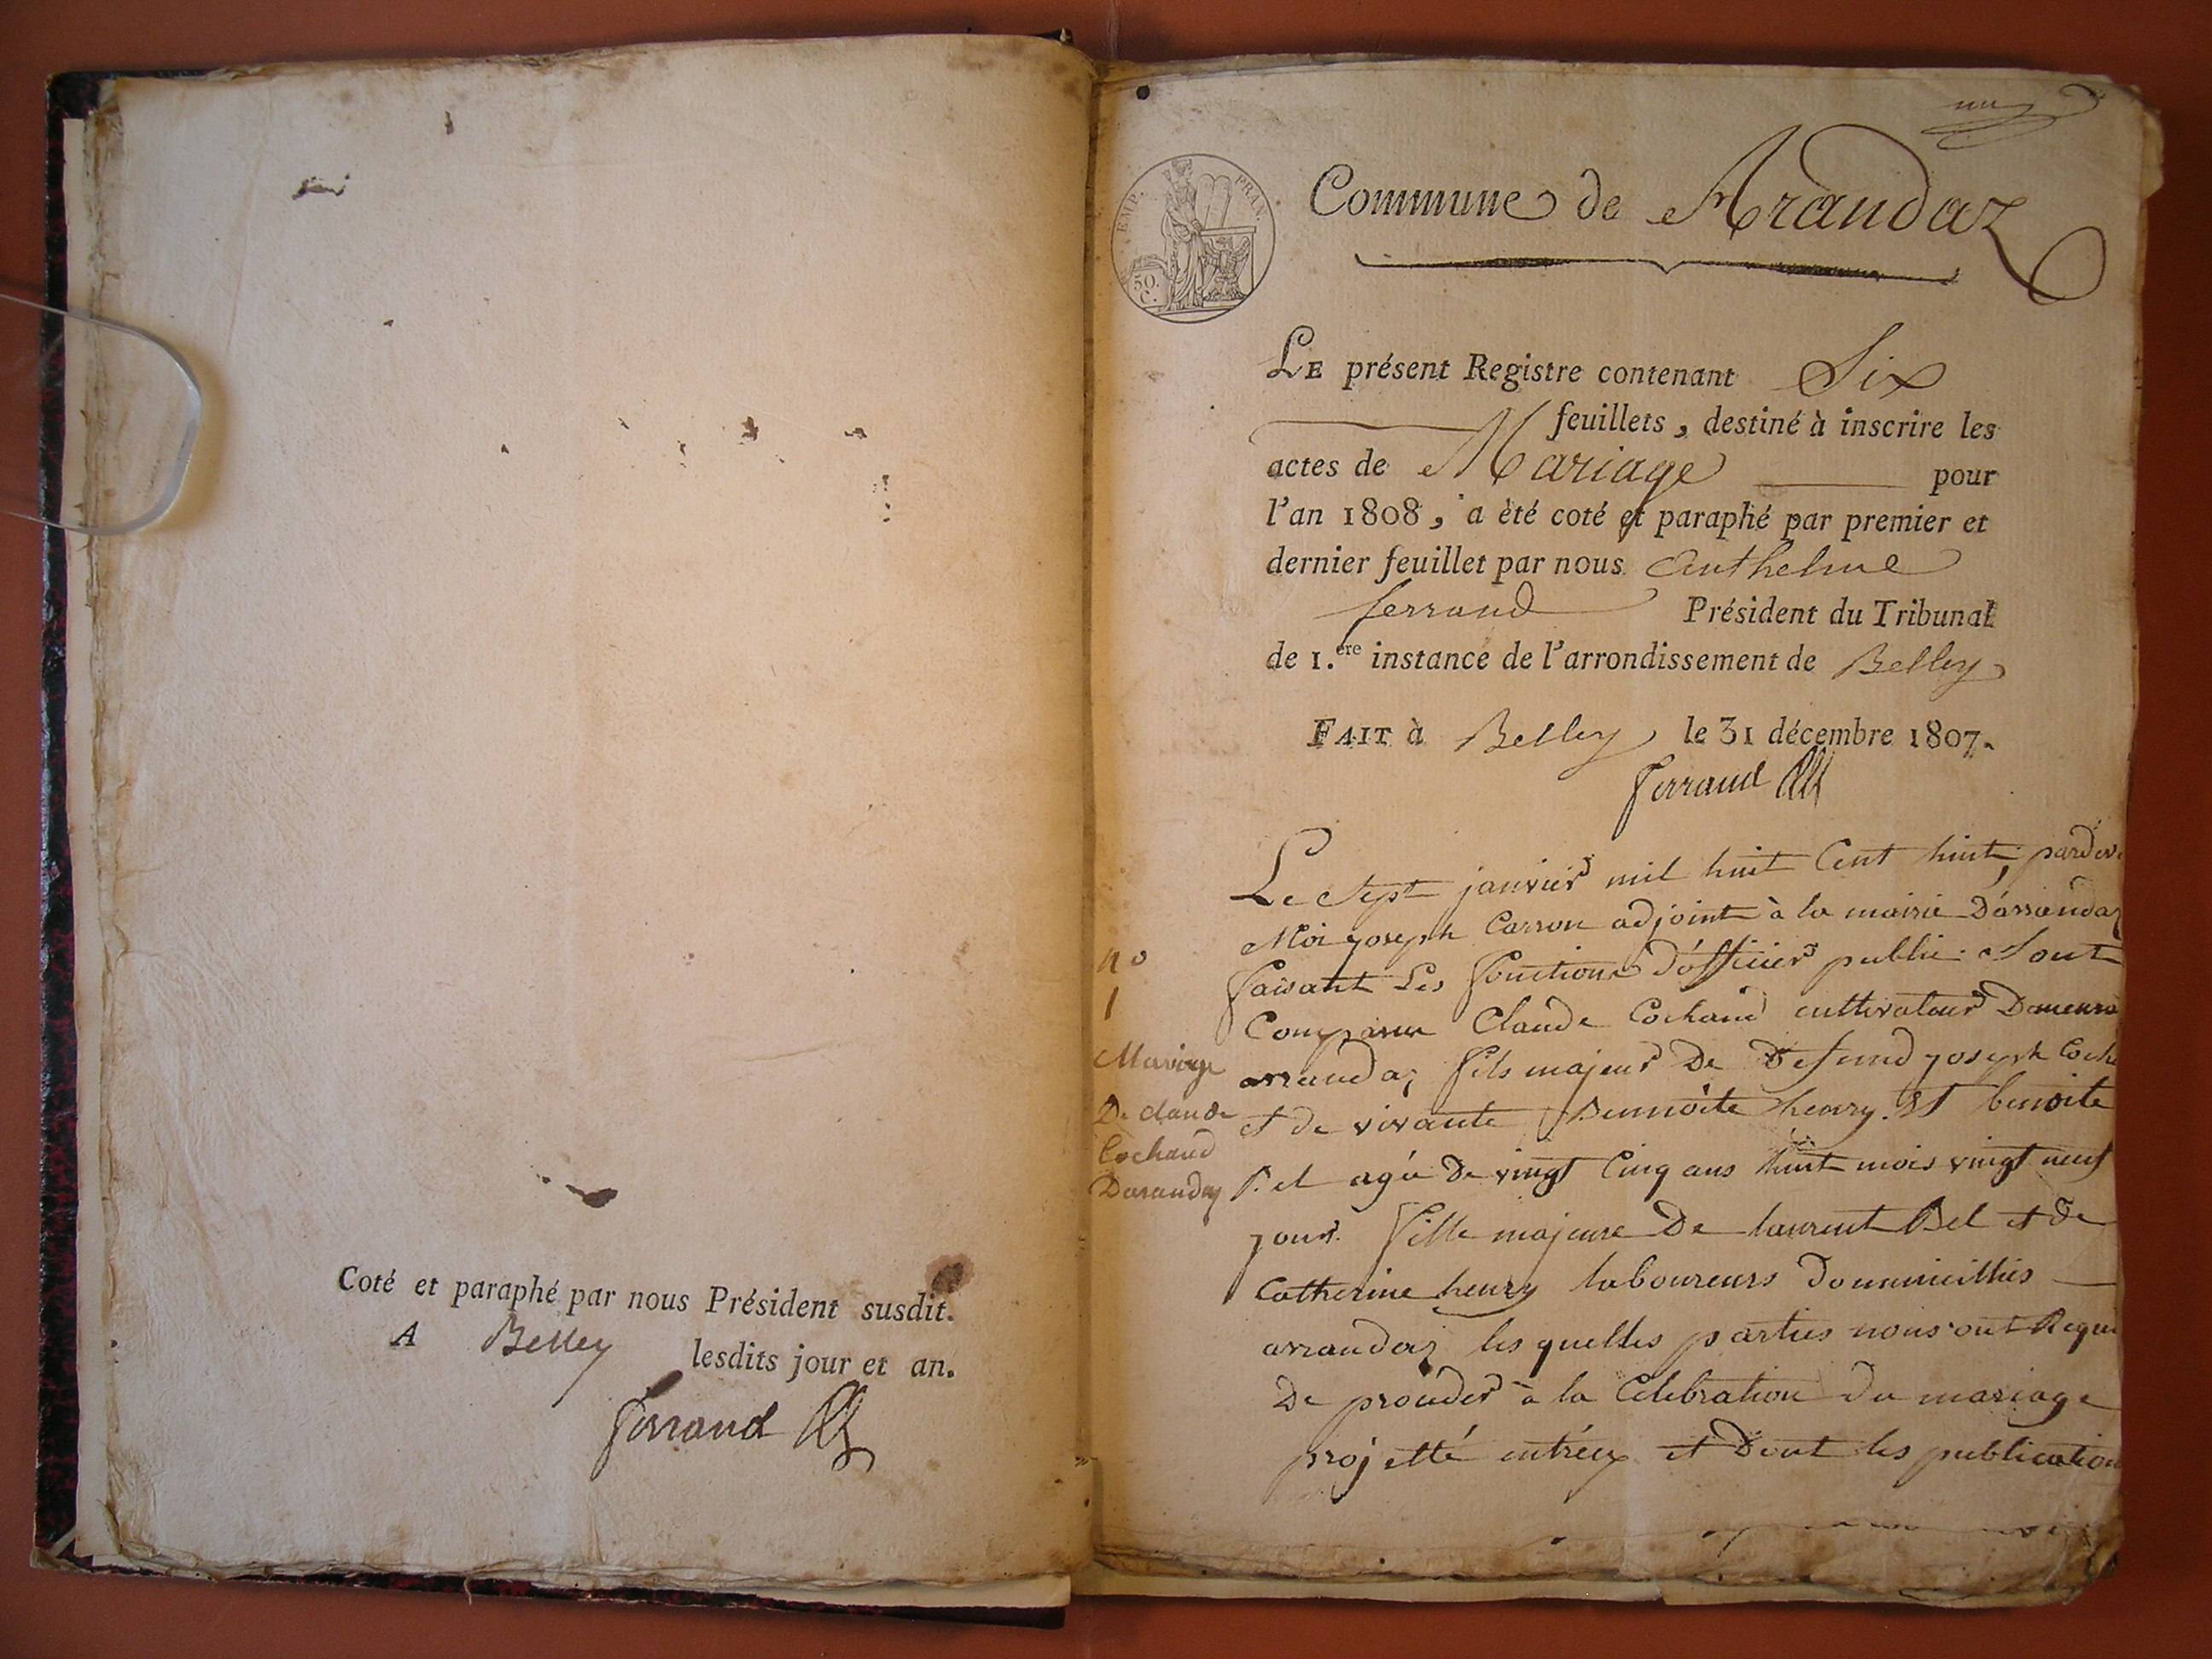 Coté et paraphé par nous Président susdit.
A Belley lesdits jour et an.
ferrand
un
EMP. FRAN.
50. C.
Commune de Arandaz
LE présent Registre contenant Six
feuillets, destiné à inscrire les
actes de Mariage pour
l'an 1808, a été coté et paraphé par premier et
dernier feuillet par nous Anthelme
ferrand Président du Tribunal
de 1.ere instance de l'arrondissement de Belley
FAIT à Belley le 31 décembre 1807.
ferrand
Le Sept janvier mil huit Cent huit, pardev
Moi joseph Carron adjoint à la mairie D'arrandaz
faisant Les fonctions d'officier public. Sont
Comparu Claude Cochand cultivateur Demeura
arranda; fils majeur De Defund joseph Coch
et de vivante Bennoite henry. Et benoite
Bel agée De vingt Cinq ans huit mois vingt neuf
jours. fille majeure De laurent Bel et de
Catherine henry laboureurs Dommicilliés
arrandaz les quelles parties nous ont Requi
De proceder à la Celebration du mariage
projetté entr'eux et Dont les publication
no
1
Mariage
De claude
Cochand
Darandaz